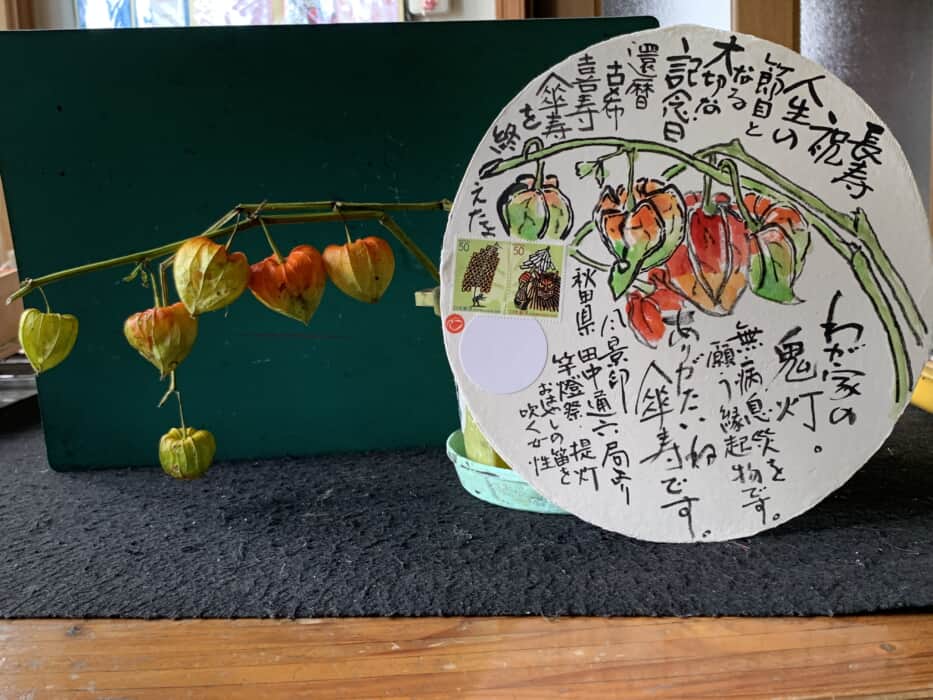 長寿
祝
人生の
節目と
なる
大切な
記念日
還暦
古希
喜寿
傘寿
を
終えたよ
わが家の
鬼灯。
無病息災を
願う縁起物です。
ありがたいね
傘寿です。
秋田県
風景印
田中通六局より
竿燈祭 提灯
おはやしの笛を
吹く女性
50
50